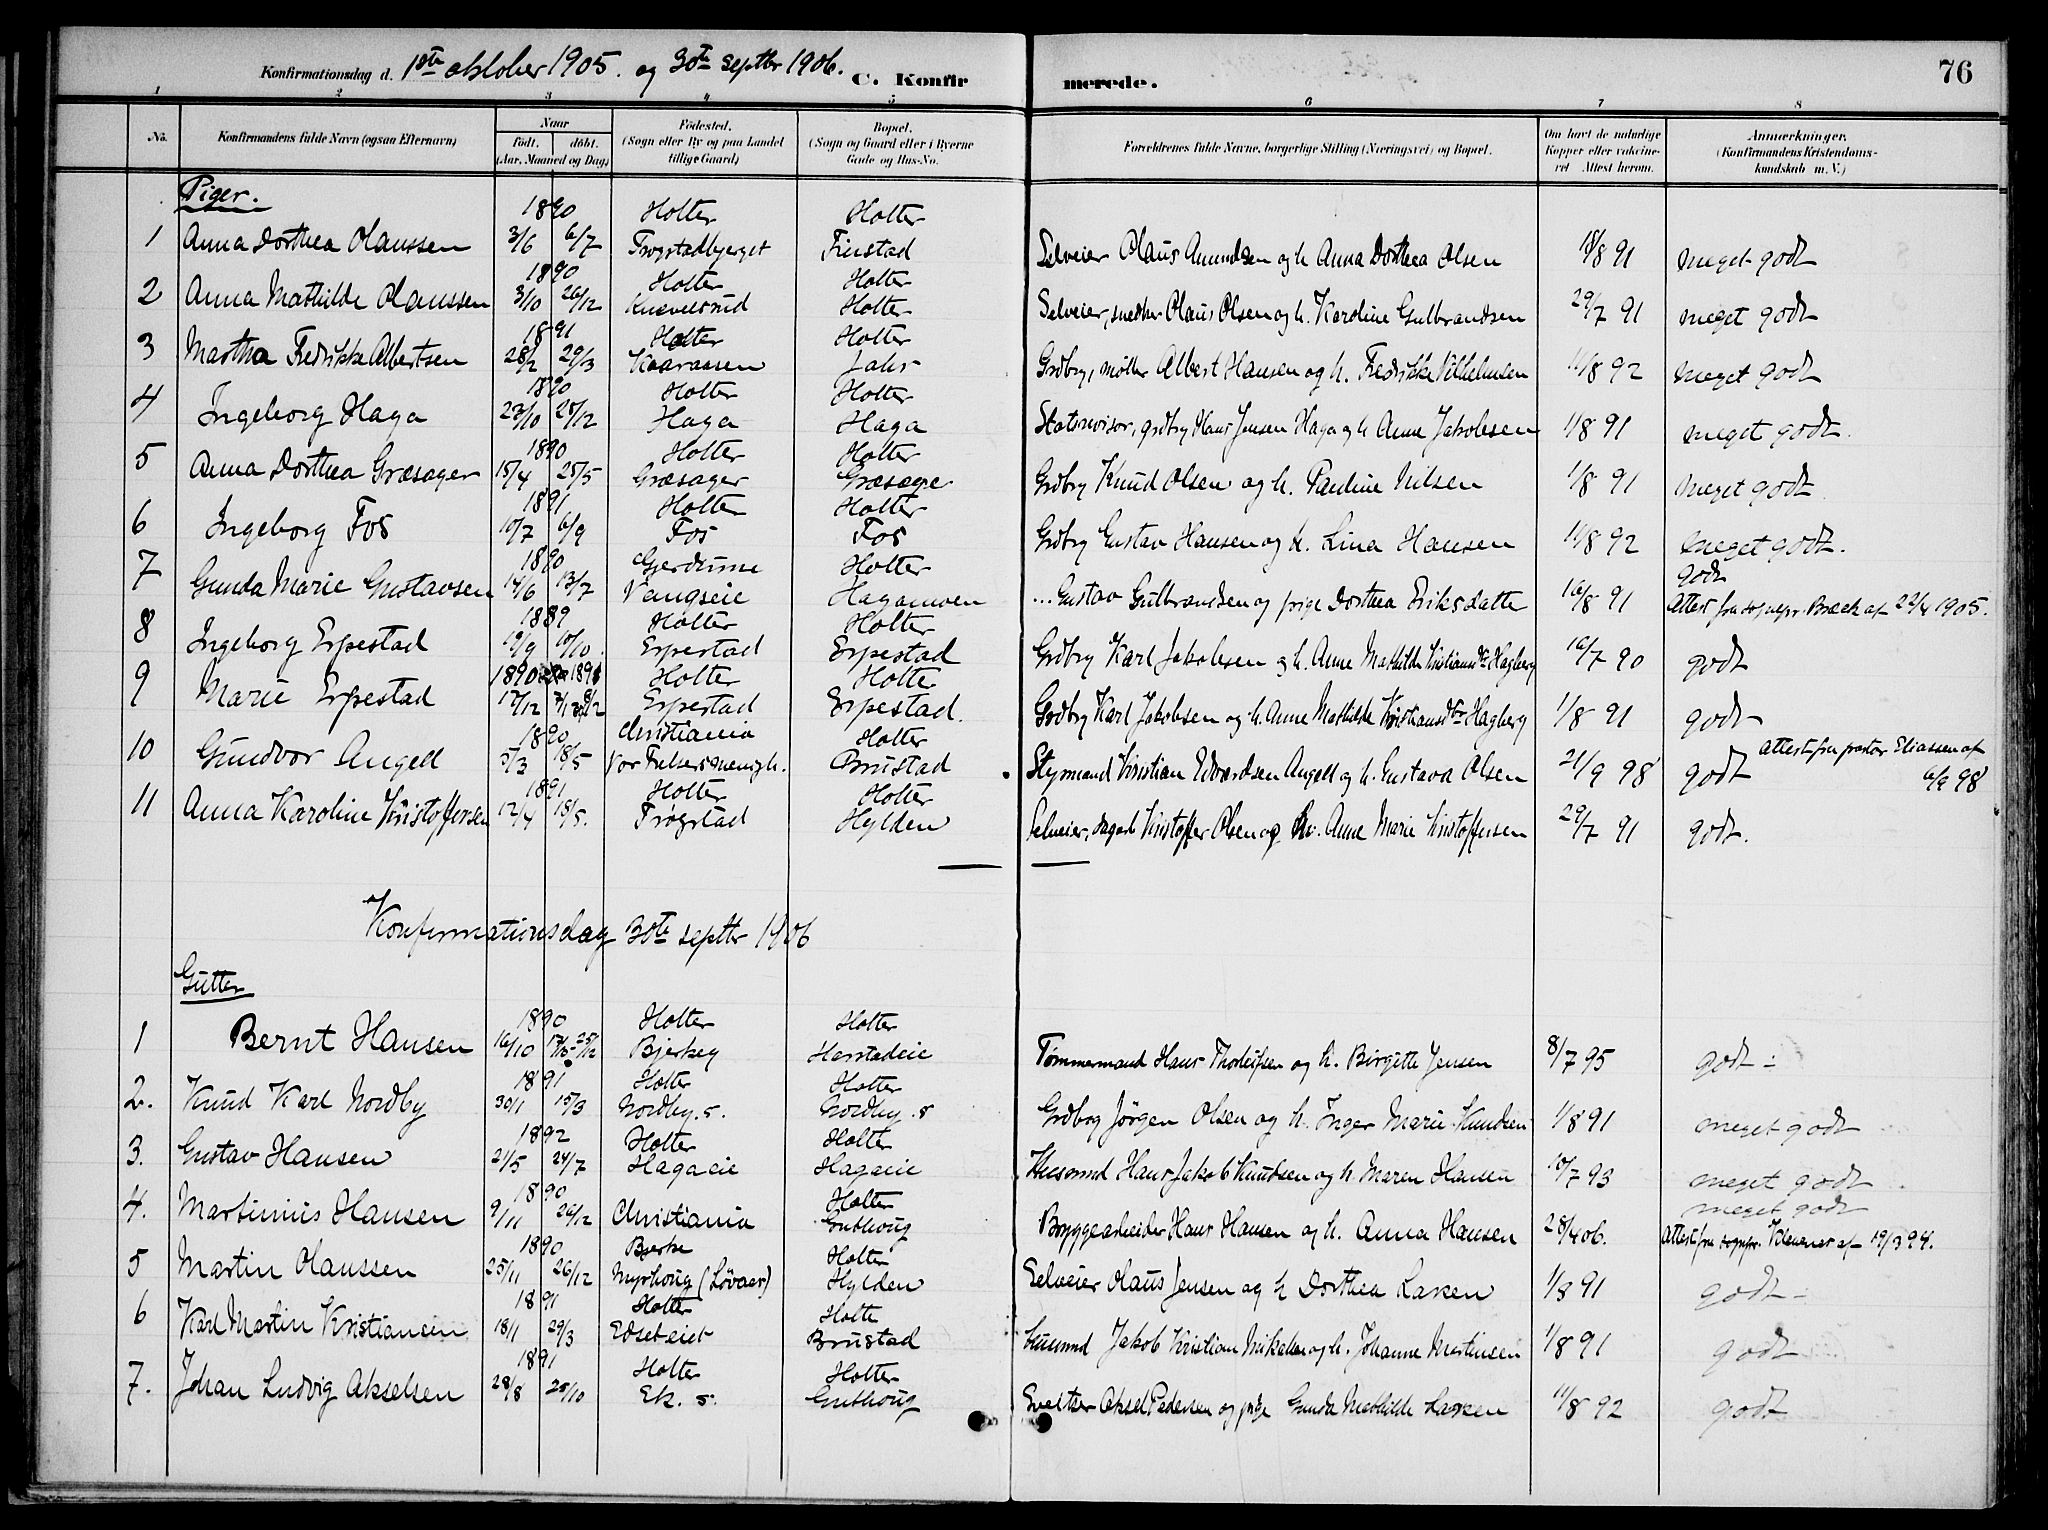 Konfirmationsdag d. 1ste oktober 1905. og 30te septbr 1906. C. Konfirmerede. 76
1 2 3 4 5 6 7 8
No. Konfirmandens fulde Navn (ogsaa Efternavn) Naar Födt. döbt. (Aar, Maaned og Dag) Födested. (Sogn eller By og paa Landet tillige Gaard) Bopæl. (Sogn og Gaard eller i Byerne Gade og Hus-No. Forældrenes fulde Navne, borgerlige Stilling (Næringsvei) og Bopæl. Om havt de naturlige Kopper eller vakcineret Attest herom. Anmærkninger. (Konfirmandens Kristendomskundskab m. V.)
Piger.
1890 Holter Holter
1 Anna Dorthea Olaussen 3/6 6/7 Trogstadbjerget Finstad Selveier Olaus Amundsen og h. Anna Dorthea Olsen 18/8 91 meget godt
1890 Holter Holter
2 Anna Mathilde Olaussen 3/10 26/12 Knevelsrud Holter Selveier, snedker Olaus Olsen og h. Karoline Gulbrandsen 29/7 91 meget godt
1891 Holter Holter
3 Martha Fredrikke Albertsen 28/2 29/3 Kaarassen Jahr Grdbr, møller Albert Hansen og h. Fredrikke Vilhelmsen 11/8 92 meget godt
1890 Holter Holter
4 Ingeborg Haga 23/10 28/12 Haga Haga Statsrevisor, grdbr Hans Jensen Haga og h. Anne Jakobsen 1/8 91 meget godt.
1890 Holter Holter
5 Anna Dorthea Græsager 15/4 25/5 Græsager Græsager Grdbr Knud Olsen og h. Pauline Nilsen 1/8 91 meget godt.
1891 Holter Holter
6 Ingeborg Fos 10/7 6/9 Fos Fos Grdbr Gustav Hansen og h. Lina Hansen 11/8 92 meget godt.
1890 Gjerdrum Holter godt
7 Gunda Marie Gustavsen 14/6 13/7 Vangseie Hagamoen ... Gustav Gulbrandsen og pige Dorthea Eriksdatter 16/8 91 Attest fra sognepr. Bræck af 22/4 1905.
1889 Holter Holter
8 Ingeborg Erpestad 19/9 10/10 Erpestad Erpestad Grdbr Karl Jakobsen og h. Anne Mathilde Kristiansdtr Hagberg 16/7 90 godt
1890 1891 Holter Holter
9 Marie Erpestad 17/12 8/2 Erpestad Erpestad. Grdbr Karl Jakobsen og h. Anne Mathilde Kristiansdtr Hagberg 1/8 91 godt
1890 Christiania Holter
10 Gundvor Angell 5/3 18/5 Vor Frelsers menigh. Brustad Styrmand Kristian Edvardsen Angell og h. Gustava Olsen 21/9 98 godt Attest fra pastor Eliassen af 6/9 98
1891 Holter Holter
11 Anna Karoline Kristoffersen 12/4 18/5. Trøgstad Hylden Selveier, dagarb Kristoffer Olsen og hu. Anne Marie Kristoffersen 29/7 91 godt.
Konfirmationsdag 30te septbr 1906
Gutter
1890 Holter Holter
1 Bernt Hansen 16/10 25/12 Bjerkey Herstadeie Tømmermand Hans Thorleifsen og h. Birgitte Jensen 8/7 95 godt -
1891 Holter Holter
2. Knud Karl Nordby 30/1 15/3 Nordby. s. Nordby. s Grdbr Jörgen Olsen og h. Inger Marie Knudsen 1/8 91 meget godt
1892 Holter Holter
3. Gustav Hansen 21/5 24/7 Hagaeie Hagaeie Husmand Hans Jakob Knudsen og h. Maren Hansen 10/7 93 meget godt
1890 Holter meget godt
4. Martinius Hansen 9/11 26/12 Christiania Guthoug Bryggearbeider Hans Hansen og h. Anna Hansen 28/4 06. Attest fra sognepr. Klevener af 19/3 94.
1890 Bjerke Holter
5 Martin Olaussen 25/11 26/12 Myrhoug (Løvaer) Hylden Selveier Olaus Jensen og h Dorthea Larsen 1/8 91 godt -
1891 Holter Holter
6 Karl Martin Kristiansen 18/1 29/3 Edseteiet Brustad Husmd Jakob Kristian Mikalsen og h. Johanne Martinsen 1/8 91 godt
1891 Holter Holter
7. Johan Ludvig Akselsen 28/8 25/10 Ek. s. Guthoug Sveitser Aksel Pedersen og pige Gunda Mathilde Larsen 11/8 92 godt